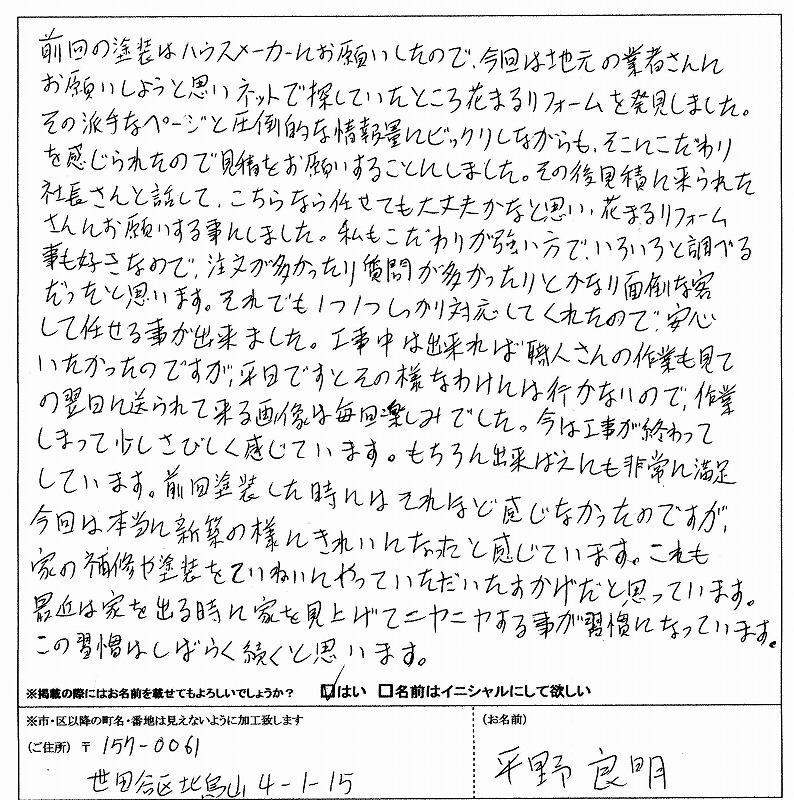 前回の塗装はハウスメーカーにお願いしたので、今回は地元の業者さんに
お願いしようと思いネットで探していたところ花まるリフォームを発見しました。
その派手なページと圧倒的な情報量にビックリしながらも、そこにこだわり
を感じられたので見積をお願いすることにしました。その後見積に来られた
社長さんと話して、こちらなら任せても大丈夫かなと思い、花まるリフォーム
さんにお願いする事にしました。私もこだわりが強い方で、いろいろと調べる
事も好きなので、注文が多かったり質問が多かったりとかなり面倒な客
だったと思います。それでも1つ1つしっかり対応してくれたので、安心
して任せる事が出来ました。工事中は出来れば職人さんの作業も見て
いたかったのですが、平日ですとその様なわけには行かないので、作業
の翌日に送られて来る画像は毎回楽しみでした。今は工事が終わって
しまって少しさびしく感じています。もちろん出来ばえにも非常に満足
しています。前回塗装した時にはそれほど感じなかったのですが、
今回は本当に新築の様にきれいになったと感じています。これも
家の補修や塗装をていねいにやっていただいたおかげだと思っています。
最近は家を出る時に家を見上げてニヤニヤする事が習慣になっています。
この習慣はしばらく続くと思います。
※掲載の際にはお名前を載せてもよろしいでしょうか？ ☑はい □名前はイニシャルにして欲しい
※市・区以降の町名・番地は見えないように加工致します
(お名前)
(ご住所) 〒 157-0061
世田谷区北烏山4-1-15
平野 良明